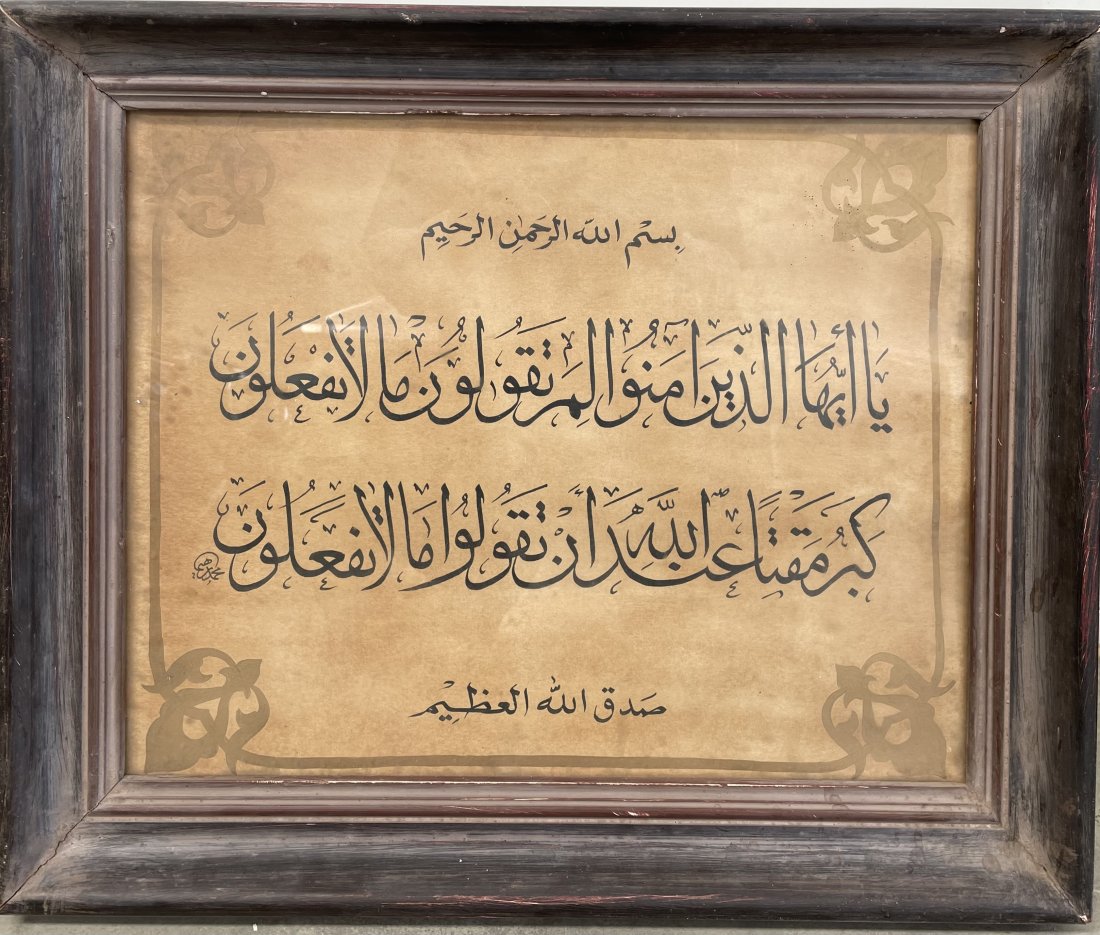 بسم الله الرحمن الرحيم
يا أيها الذين آمنوا لم تقولون ما لا تفعلون
كبر مقتا عند الله أن تقولوا ما لا تفعلون
صدق الله العظيم